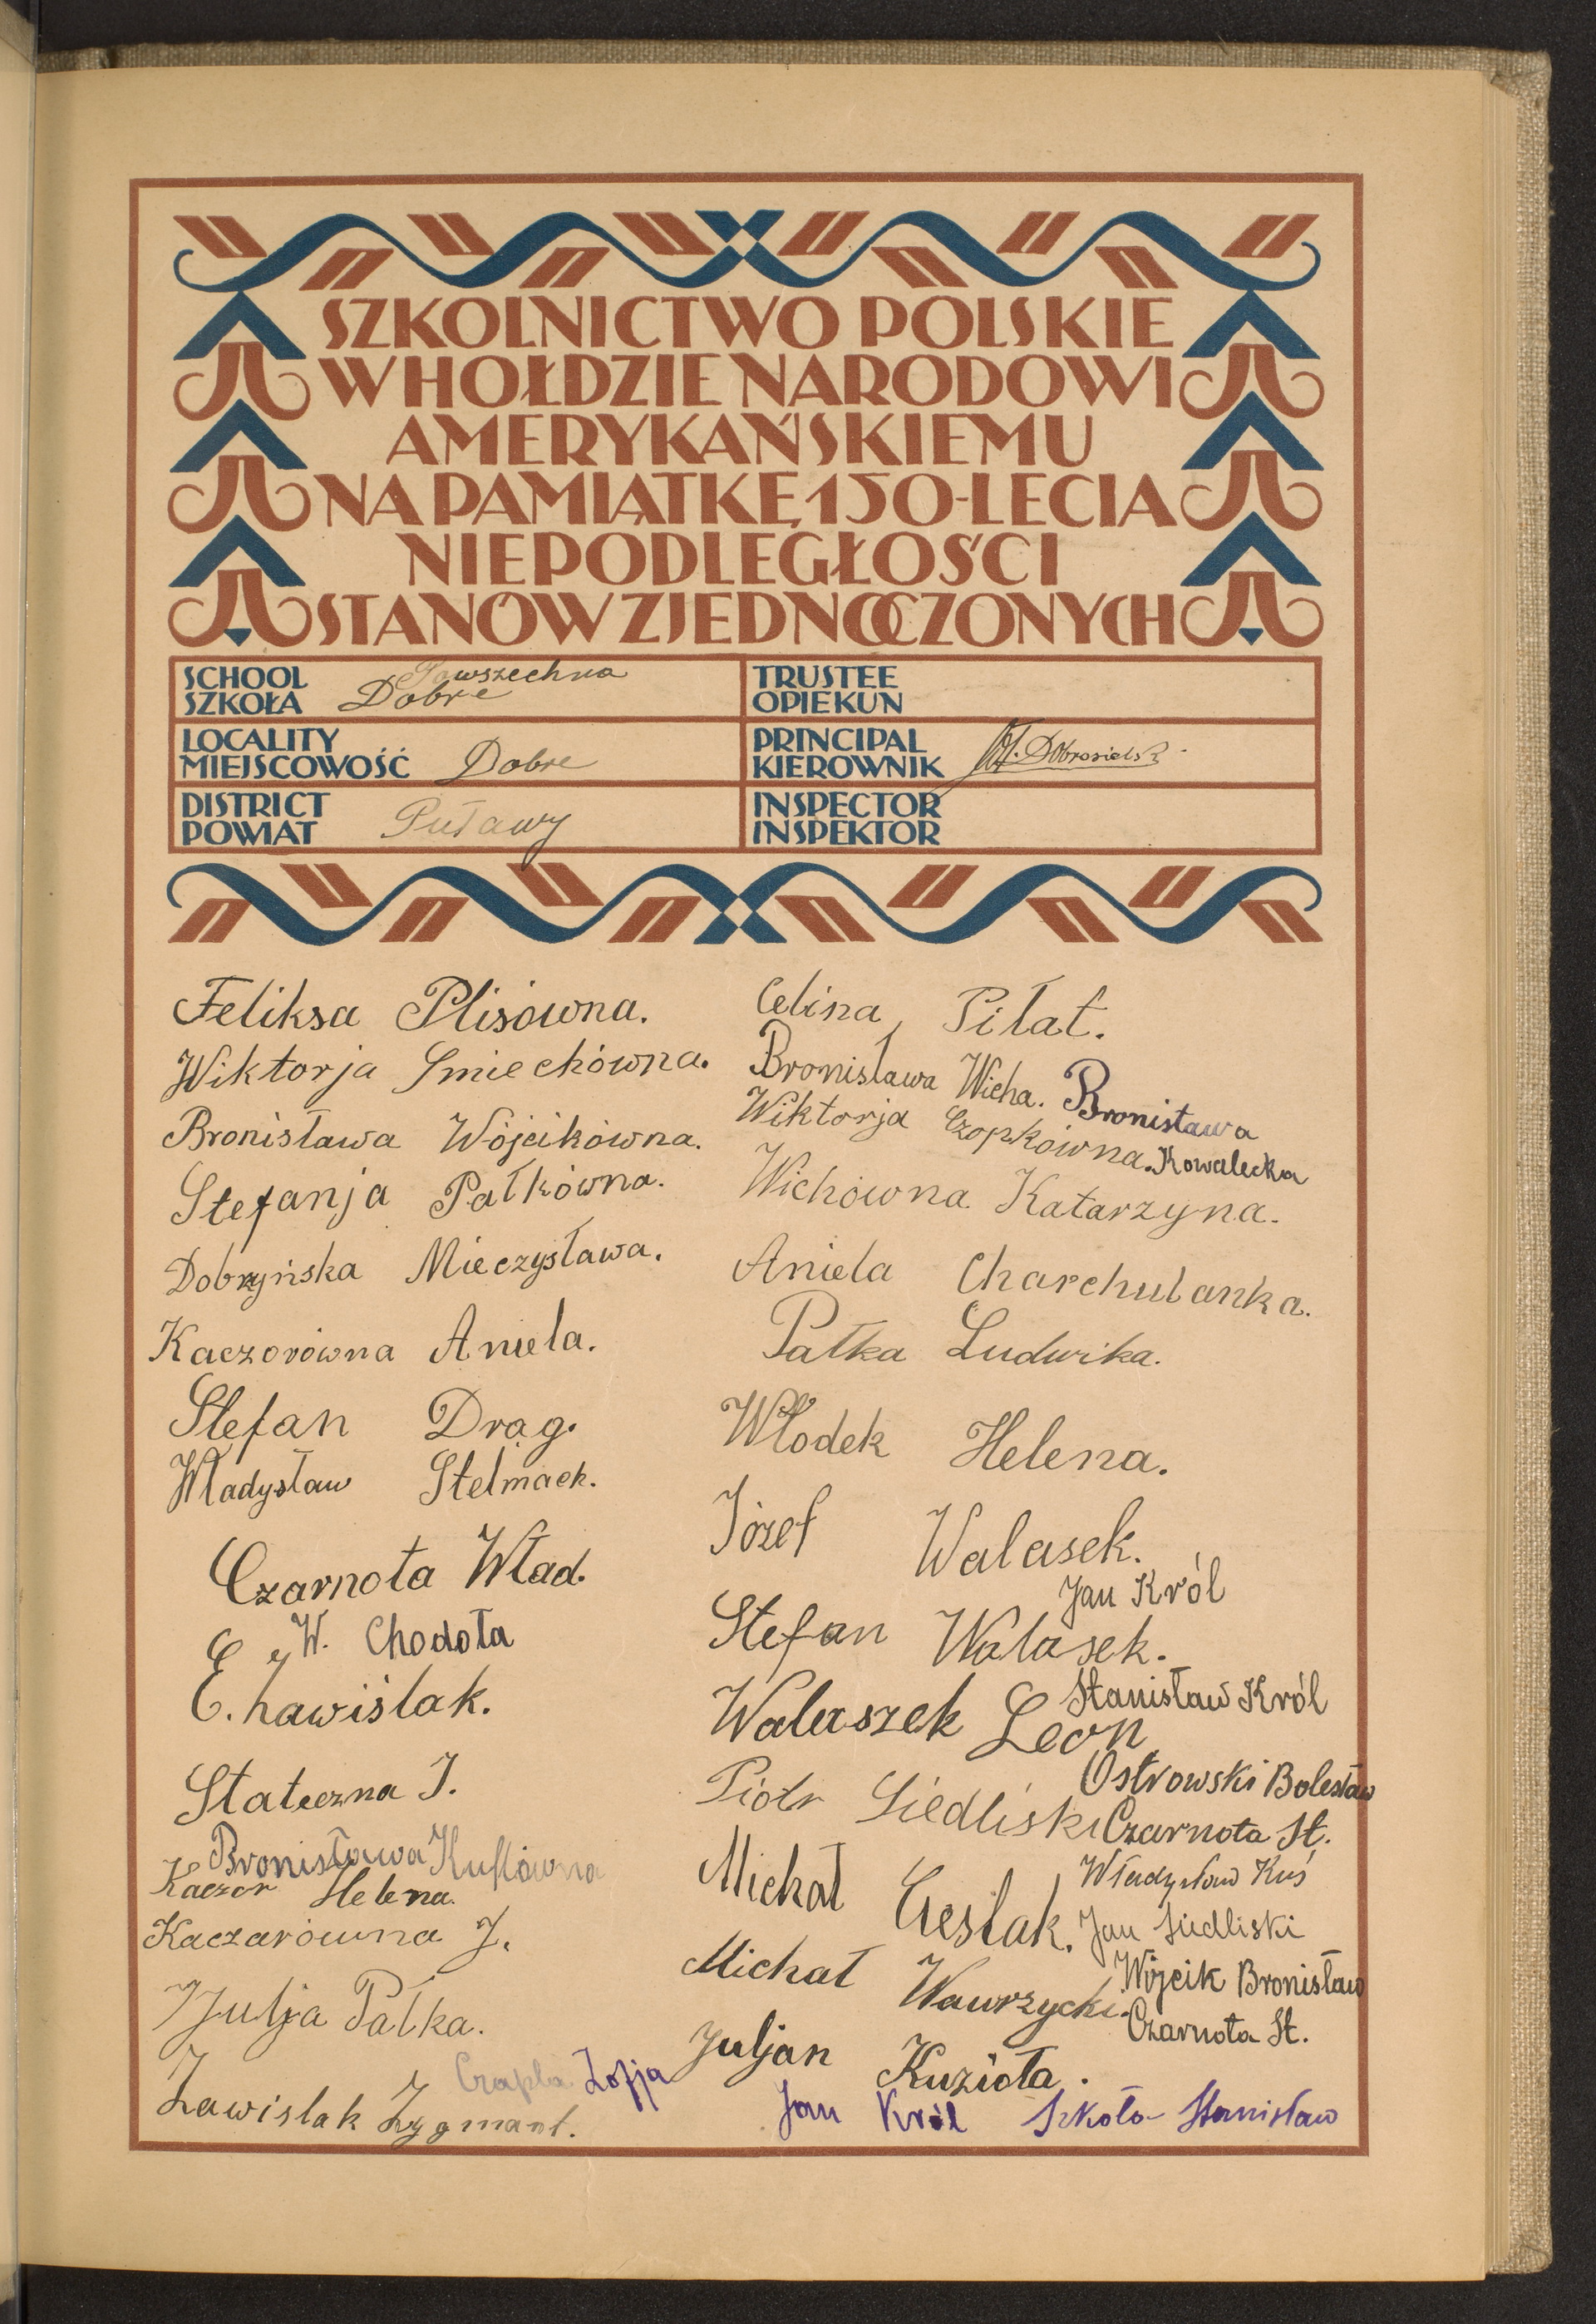 SZKOLNICTWO POLSKIE
W HOŁDZIE NARODOWI
AMERYKAŃSKIEMU
NA PAMIĄTKĘ 150-LECIA
NIEPODLEGŁOŚCI
STANÓW ZJEDNOCZONYCH
SCHOOL
SZKOŁA
Powszechna
Dobre
TRUSTEE
OPIEKUN
LOCALITY
MIEJSCOWOŚĆ
Dobre
PRINCIPAL
KIEROWNIK
DISTRICT
POWIAT
Puławy
INSPECTOR
INSPEKTOR
Feliksa Plisówna.
Wiktorja Smiechówna.
Bronisława Wójcikówna.
Stefanja Pałkówna.
Dobrzyńska Mieczysława.
Kaczorówna Aniela.
Stefan Drag.
Władysław Stelmach.
Czarnota Wład.
W. Chodoła
E. Zawiślak.
Stateczna J.
Bronisława
Kaczor Helena.
Kaczarówna J.
Julja Pałka.
Czapla Zofja
Zawislak Zygmant.
Celina Piłat.
Bronisława Wicha.
Bronisława
Kowalecka
Wiktorja Czopkówna.
Wichówna Katarzyna.
Aniela Charchulanka.
Pałka Ludwika.
Włodek Helena.
Józef Walasek.
Jan Król
Stefan Walasek.
Stanisław Król
Walaszek Leon
Ostrowski Bolesław
Piotr Siedliski
Czarnota St.
Władysław Kuś
Michał Cieslak.
Jan Siedliski
Wójcik Bronisław
Michał Wawrzycki.
Czarnota St.
Juljan Kuzioła.
Jan Król Szkoła Stanisław